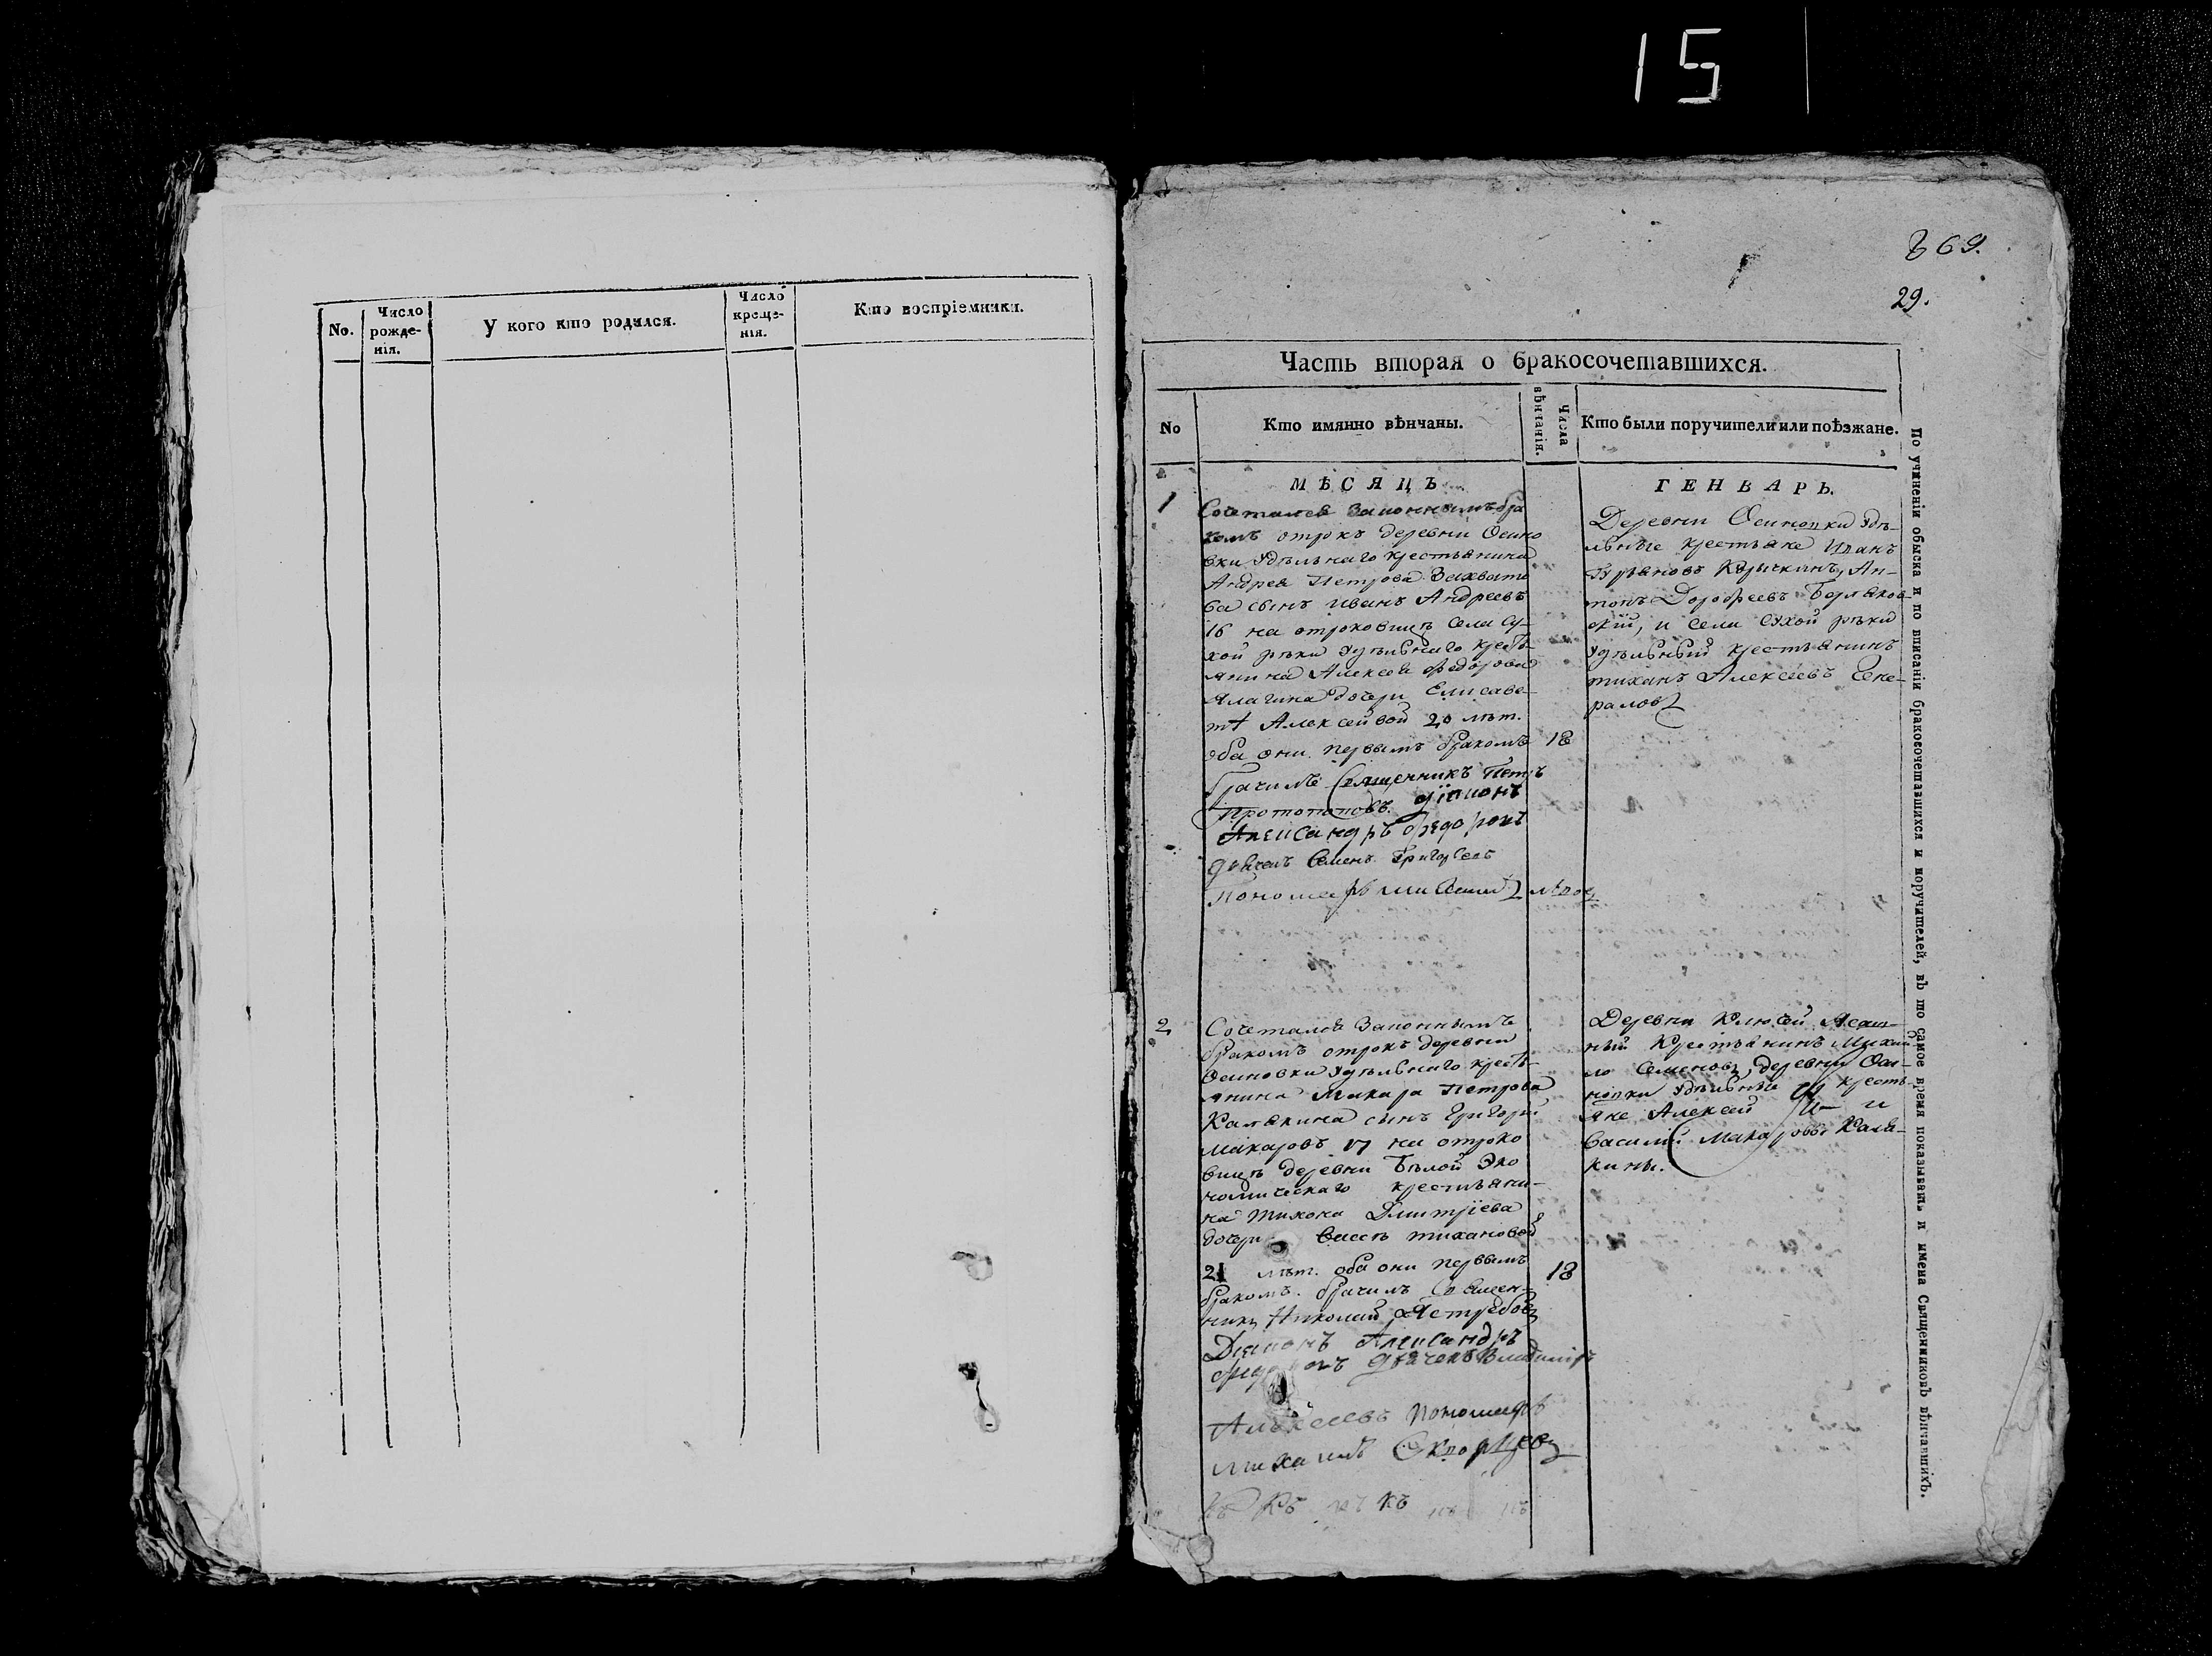 15
No.
Число рожде- нія.
У кого кто родился.
Число креще- нія.
Кто воспріемники.
869.
29.
Часть вторая о бракосочетавшихся.
No
Кто имянно вѣнчаны.
Числа вѣнчанія.
Кто были поручители или поѣзжане.
МѢСЯЦЪ
ГЕНВАРЬ.
1
Сочетался законнымъ бра
комъ отрокъ деревни Осино
вки удѣльнаго крестьянина
Андрея Петрова
сынъ Иванъ Андреевъ
16 на отроковицѣ села Су-
хой рѣки удѣльнаго кресть-
янина Алексея Федорова
дочери Елисаве-
тѣ Алексеивой 20 лѣт.
оба они первымъ бракомъ
18
брачилъ Священникъ Петръ
Протопоповъ. діаконъ
Александръ Федоровъ
дьячекъ Семенъ Григорьевъ
пономарь
Деревни Осиновки удѣ-
льные крестьяне Иванъ
Ан-
тонъ Дорофеевъ
и села Сухой рѣки
удѣльный крестьянинъ
тиханъ Алексеевъ
2
Сочетался законнымъ
бракомъ отрокъ деревни
Осиновки удѣльнаго кресть-
янина Макара Петрова
Калякина сынъ Григорій
Макаровъ 17 на отроко
вицѣ деревни Бѣлой Эко
номическаго крестьяни-
на Тихона Дмитріева
дочери тихановой
21 лѣт. оба они первымъ
18
бракомъ. брачилъ Священ-
никъ Николай Ястребовъ
Діаконъ Александръ
дьячекъ Владиміръ
Алексеевъ пономарь
михаилъ Скворцовъ
къ къ къ къ
Деревни Ключей
крестьянинъ Михаи-
ло Семеновъ, деревни Оси-
новки удѣльные кресть
яне Алексей и
Василій Макаровы Каля-
кины.
По учиненіи обыска и по вписаніи бракосочетавшихся и поручителей, въ то самое время показывать и имена Священниковъ вѣнчавшихъ.